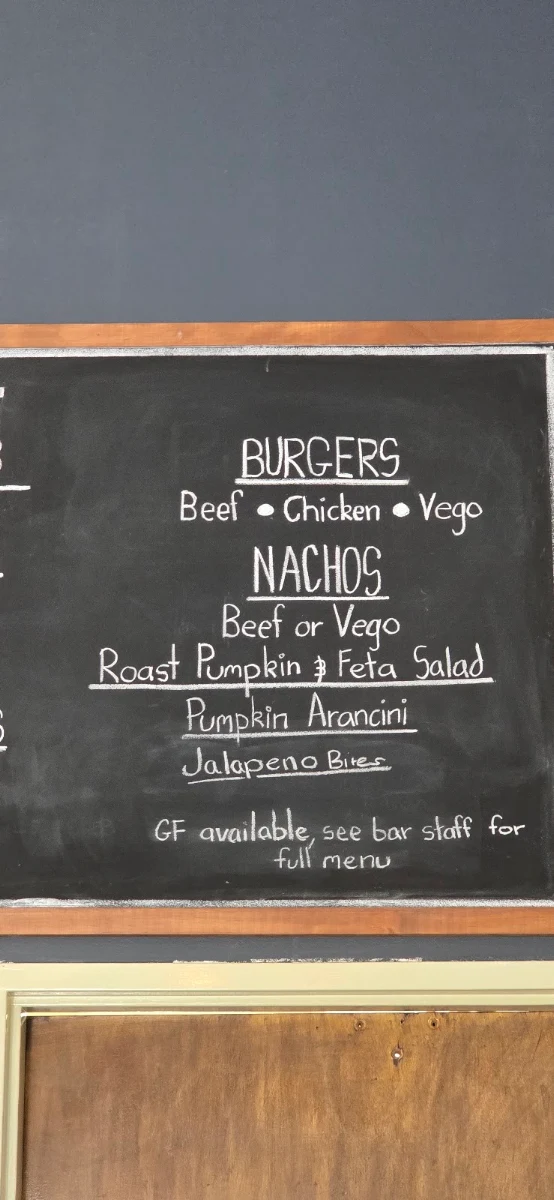 BURGERS
Beef • Chicken • Vego
NACHOS
Beef or Vego
Roast Pumpkin & Feta Salad
Pumpkin Arancini
Jalapeno Bites
GF available, see bar staff for
full menu